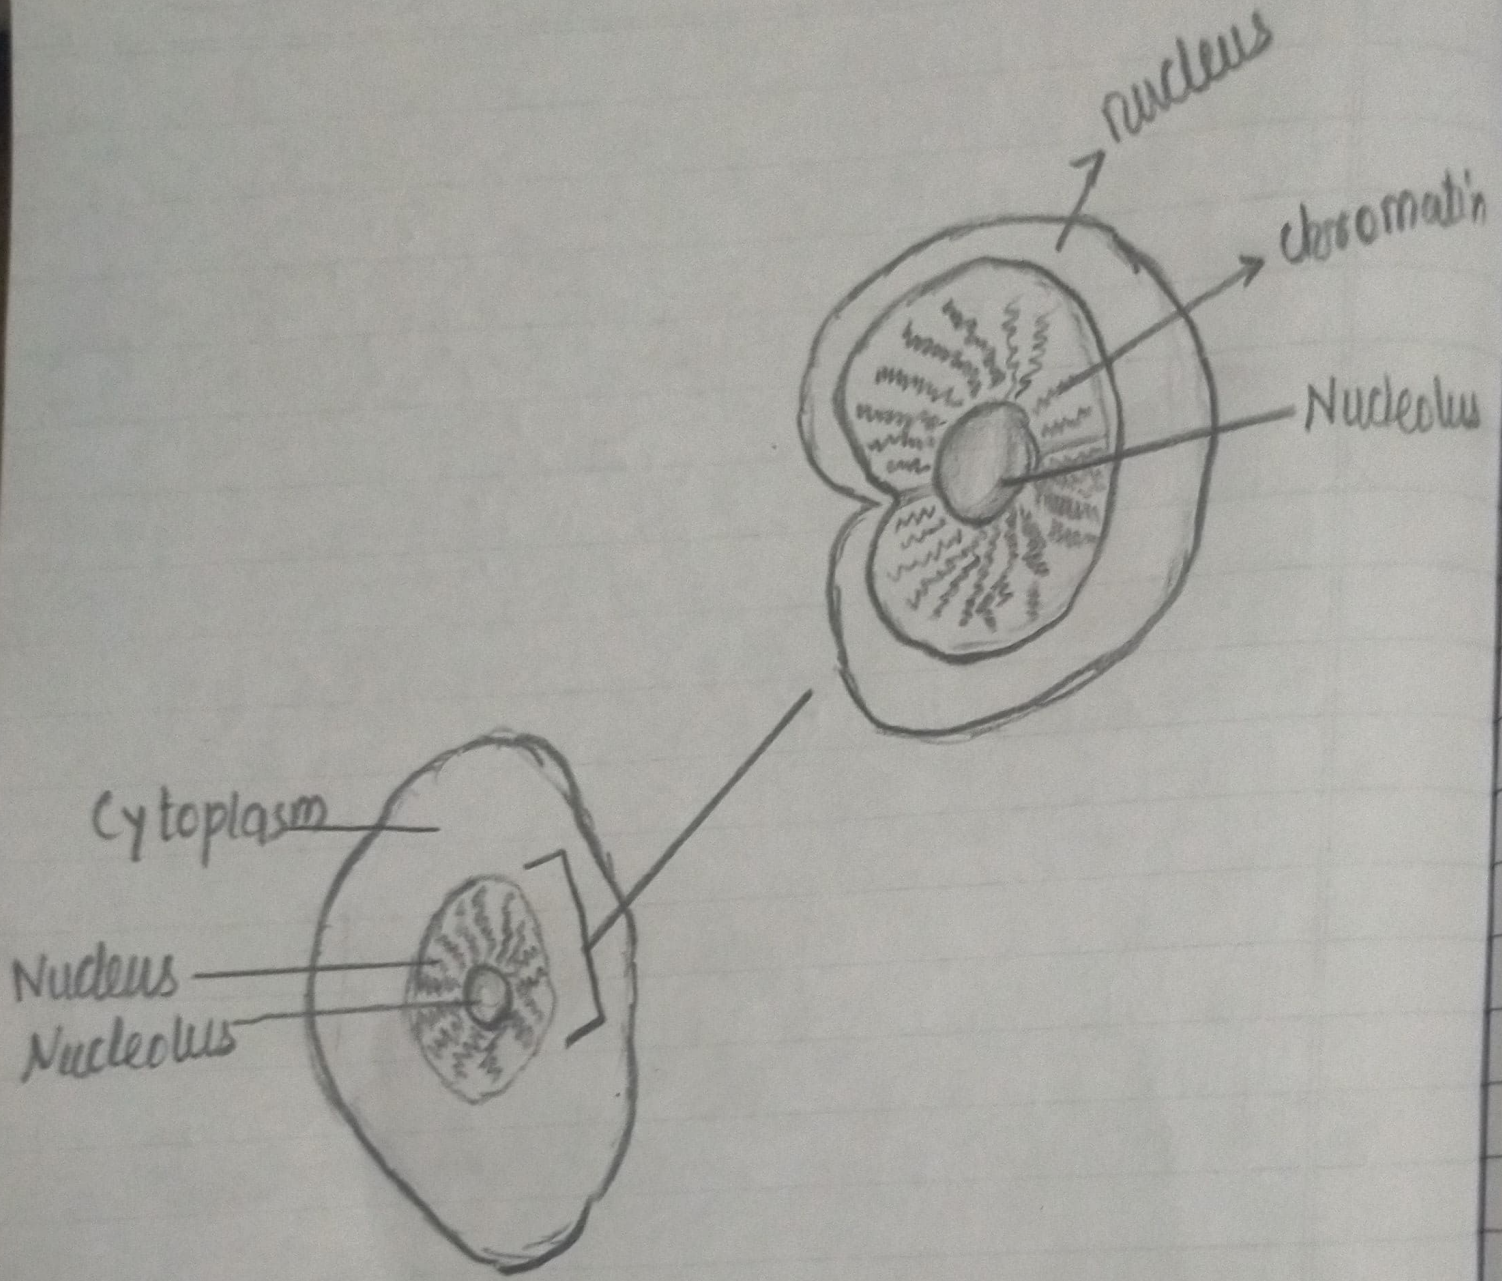 nucleus
chromatin
Nucleolus
Cytoplasm
Nucleus
Nucleolus